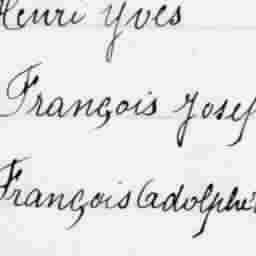 Henri Yves
François Josef
François Adolphe